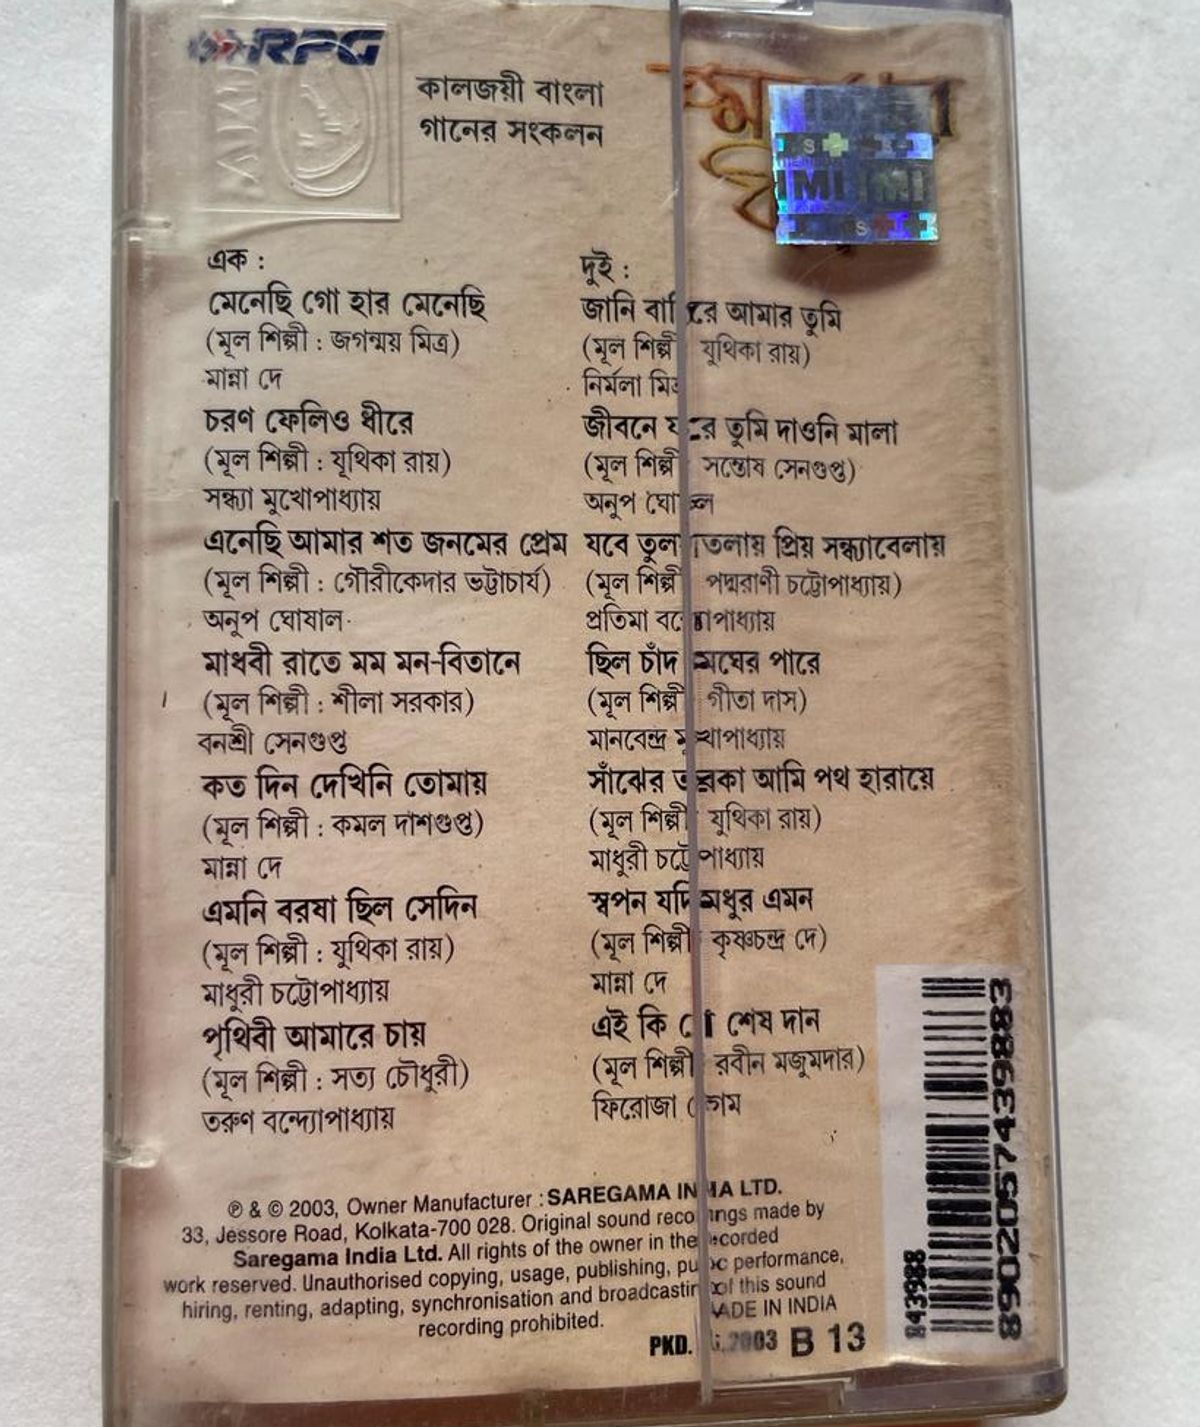 RPG
কালজয়ী বাংলা
গানের সংকলন
এক :
মেনেছি গো হার মেনেছি
(মূল শিল্পী : জগন্ময় মিত্র)
মান্না দে
চরণ ফেলিও ধীরে
(মূল শিল্পী : যূথিকা রায়)
সন্ধ্যা মুখোপাধ্যায়
এনেছি আমার শত জনমের প্রেম
(মূল শিল্পী : গৌরীকেদার ভট্টাচার্য)
অনুপ ঘোষাল
মাধবী রাতে মম মন-বিতানে
(মূল শিল্পী : শীলা সরকার)
বনশ্রী সেনগুপ্ত
কত দিন দেখিনি তোমায়
(মূল শিল্পী : কমল দাশগুপ্ত)
মান্না দে
এমনি বরষা ছিল সেদিন
(মূল শিল্পী : যুথিকা রায়)
মাধুরী চট্টোপাধ্যায়
পৃথিবী আমারে চায়
(মূল শিল্পী : সত্য চৌধুরী)
তরুণ বন্দ্যোপাধ্যায়
দুই :
জানি আমার তুমি
(মূল শিল্পী যুথিকা রায়)
নির্মলা
জীবনে তুমি দাওনি মালা
(মূল শিল্পী সন্তোষ সেনগুপ্ত)
অনুপ
যবে প্রিয় সন্ধ্যাবেলায়
(মূল শিল্পী পদ্মরাণী চট্টোপাধ্যায়)
প্রতিমা বন্দ্যোপাধ্যায়
ছিল চাঁদ মেঘের পারে
(মূল শিল্পী গীতা দাস)
মানবেন্দ্র মুখোপাধ্যায়
সাঁঝের তারকা আমি পথ হারায়ে
(মূল শিল্পী যুথিকা রায়)
মাধুরী চট্টোপাধ্যায়
স্বপন যদি মধুর এমন
(মূল শিল্পী কৃষ্ণচন্দ্র দে)
মান্না দে
এই কি গো শেষ দান
(মূল শিল্পী রবীন মজুমদার)
ফিরোজা বেগম
℗ & © 2003, Owner Manufacturer : SAREGAMA INDIA LTD.
33, Jessore Road, Kolkata-700 028. Original sound recordings made by
Saregama India Ltd. All rights of the owner in the recorded
work reserved. Unauthorised copying, usage, publishing, public performance,
hiring, renting, adapting, synchronisation and broadcasting of this sound
recording prohibited.
MADE IN INDIA
PKD. 2003 B 13
843988
8902057439883